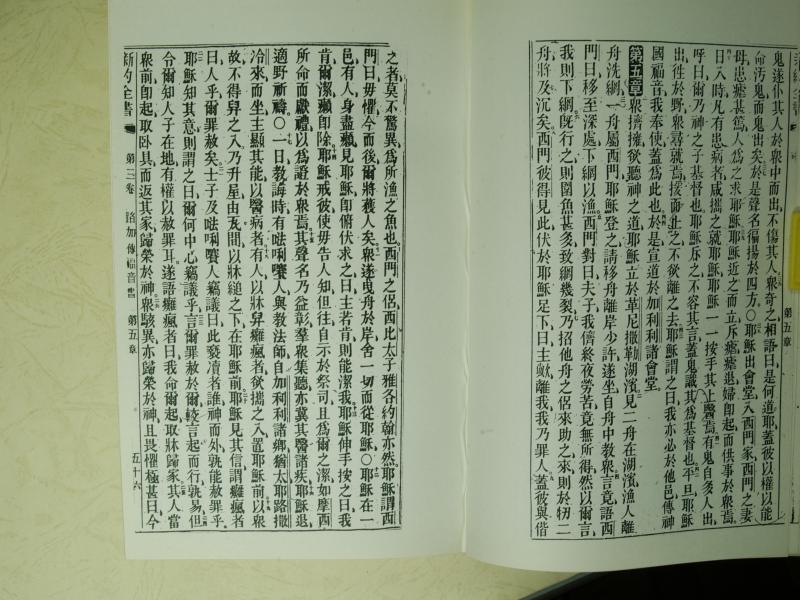 鬼遂仆其人於衆中而出不傷其人衆奇之相語曰是何道耶蓋彼以權以能
命汚鬼而鬼出矣於是聲名徧揚於四方〇耶穌出會堂入西門家西門之妻
母患瘧甚篤人爲之求耶穌耶穌近之而立斥瘧瘧退婦卽起而供事於衆焉
日入時凡有患病者咸攜之就耶穌耶穌一一按手其上醫焉有鬼自多人出
呼曰爾乃神之子基督也耶穌斥之不容其言蓋鬼識其爲基督也平旦耶穌
出徃於野衆尋就焉援而止之不欲離之去耶穌謂之曰我亦必於他邑傳神
國福音我奉使蓋爲此也於是宣道於加利利諸會堂
第五章衆擠擁欲聽神之道耶穌立於革尼撒勒湖濱見二舟在湖濱漁人離
舟洗網一舟屬西門耶穌登之請移舟離岸少許遂坐自舟中教衆言竟語西
門曰移至深處下網以漁西門對曰夫子我儕終夜勞苦竟無所得然以爾言
我則下網旣行之則圍魚甚多致網幾裂乃招他舟之侶來助之來則於牣二
舟將及沉矣西門彼得見此伏於耶穌足下曰主歟離我我乃罪人蓋彼與偕
之者莫不驚異爲所漁之魚也西門之侶西比太子雅各約翰亦然耶穌謂西
門曰毋懼今而後爾將獲人矣衆遂曳舟於岸舍一切而從耶穌〇耶穌在一
邑有人身盡癩見耶穌卽俯伏求之曰主若肯則能潔我耶穌伸手按之曰我
肯爾潔癩卽除耶穌戒彼使毋告人知但往自示於祭司且爲爾之潔如摩西
所命而獻禮以爲證於衆焉其聲名乃益彰羣衆集聽亦冀其醫諸疾耶穌退
適野祈禱〇一日教誨時有𠵽唎㘔人與教法師自加利利諸鄉猶太耶路撒
冷來而坐主顯其能以醫病者有人以牀舁癱瘋者欲攜之入置耶穌前以衆
故不得舁之入乃升屋由瓦間以牀縋之下在耶穌前耶穌見其信謂癱瘋者
曰人乎爾罪赦矣士子及𠵽唎㘔人竊議曰此褻瀆者誰神而外孰能赦罪乎
耶穌知其意則謂之曰爾何中心竊議乎言爾罪赦於爾較言起而行孰易但
令爾知人子在地有權以赦罪耳遂語癱瘋者曰我命爾起取牀歸家其人當
衆前卽起取臥具而返其家歸榮於神衆駭異亦歸榮於神且畏懼極甚曰今
新約全書 第三卷 路加傳福音書 第五章 五十六
第五章